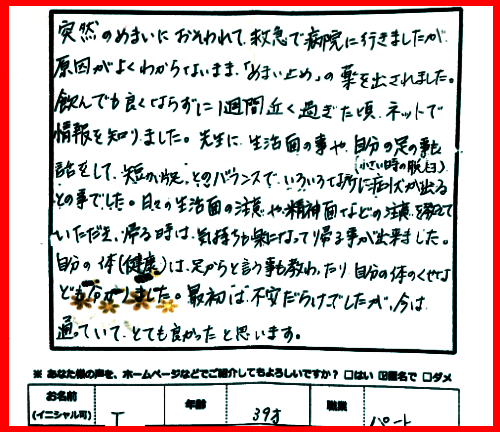 突然のめまいにおそわれて、救急で病院に行きましたが、
原因がよくわからないまま、「めまい止め」の薬を出されました。
飲んでも良くならずに1週間近く過ぎた頃、ネットで
情報を知りました。先生に、生活面の事や、自分の足の事も
(小さい時の脱臼)
話をして、短い脚とのバランスで、いろいろな場所に症状が出る
との事でした。日々の生活面の注意や、精神面などの注意を教えて
いただき、帰る時は、気持ちも楽になって帰る事が出来ました。
自分の体(健康)は、足からと言う事も教わったり 自分の体のくせな
ども分かりました。最初は、不安だらけでしたが、今は、
通っていて、とても良かったと思います。
※ あなた様の声を、ホームページなどでご紹介してもよろしいですか? □はい ☑匿名で □ダメ
お名前 年齢 職業
(イニシャル可) I 39才 パート